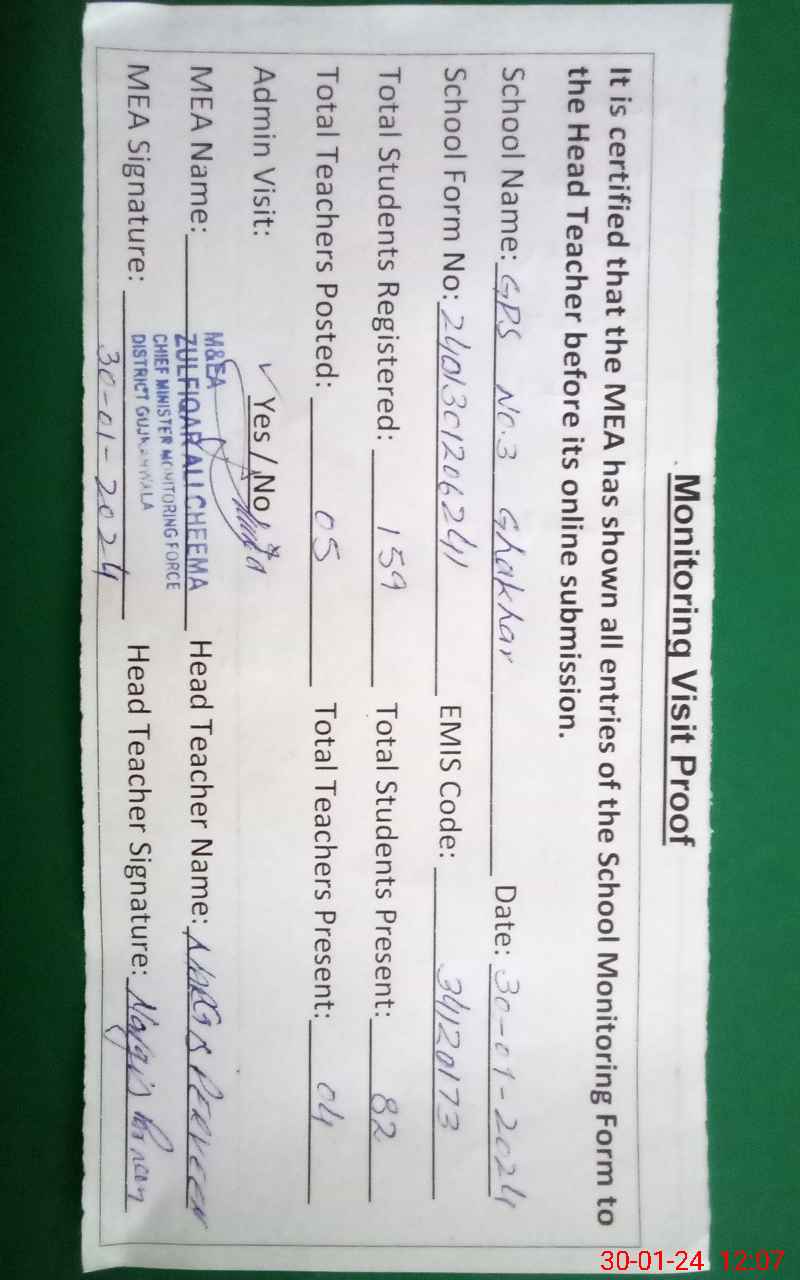 Monitoring Visit Proof
It is certified that the MEA has shown all entries of the School Monitoring Form to
the Head Teacher before its online submission.
School Name: GPS No.3 Ghakhar Date: 30-01-2024
School Form No: 2401301206241 EMIS Code: 34120173
Total Students Registered: 159 Total Students Present: 82
Total Teachers Posted: 05 Total Teachers Present: 04
Admin Visit: ✓ Yes / No
M&EA
MEA Name: ZULFIQAR ALI CHEEMA Head Teacher Name: NARGIS PERVEEN
CHIEF MINISTER MONITORING FORCE
DISTRICT GUJRANWALA
MEA Signature: 30-01-2024 Head Teacher Signature: Nargis
30-01-24 12:07